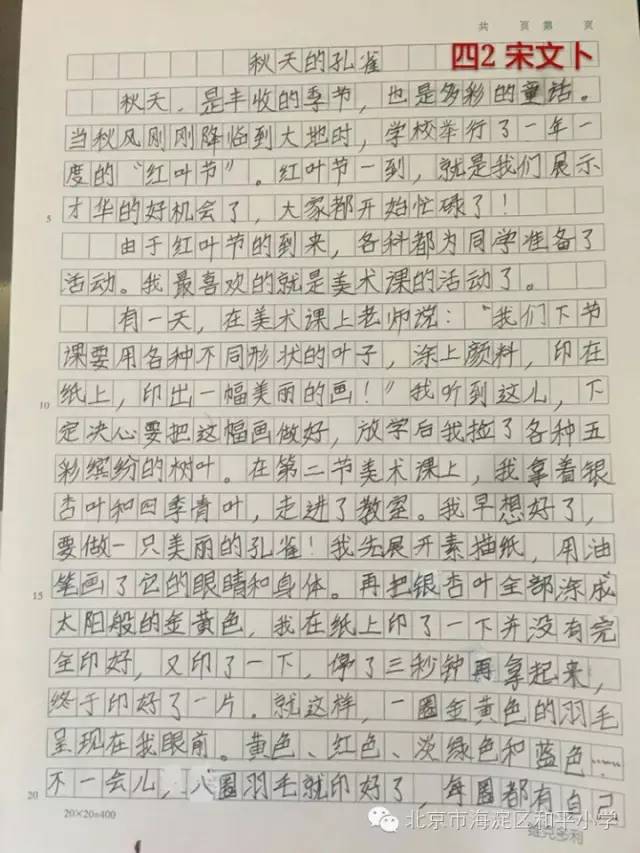 共 页 第 页
秋天的孔雀
四2 宋文卜
秋天，是丰收的季节，也是多彩的童话。
当秋风刚刚降临到大地时，学校举行了一年一
度的“红叶节”。红叶节一到，就是我们展示
5 才华的好机会了，大家都开始忙碌了！
由于红叶节的到来，各科都为同学准备了
活动。我最喜欢的就是美术课的活动了。
有一天，在美术课上老师说：“我们下节
课要用各种不同形状的叶子，涂上颜料，印在
10 纸上，印出一幅美丽的画！”我听到这儿，下
定决心要把这幅画做好，放学后我捡了各种五
彩缤纷的树叶。在第二节美术课上，我拿着银
杏叶和四季青叶，走进了教室。我早想好了，
要做一只美丽的孔雀！我先展开素描纸，用油
15 笔画了它的眼睛和身体。再把银杏叶全部涂成
太阳般的金黄色，我在纸上印了一下并没有完
全印好，又印了一下，停了三秒钟再拿起来，
终于印好了一片。就这样，一圈金黄色的羽毛
呈现在我眼前。黄色、红色、淡绿色和蓝色……
20 不一会儿，八圈羽毛就印好了，每圈都有自己
20×20=400
北京市海淀区和平小学
维克多利